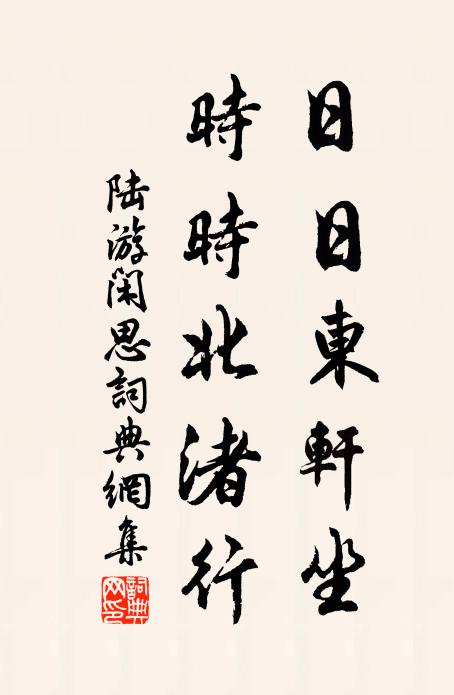 日日東軒坐
時時北渚行
陸游閑思詞典網集
詞典網印